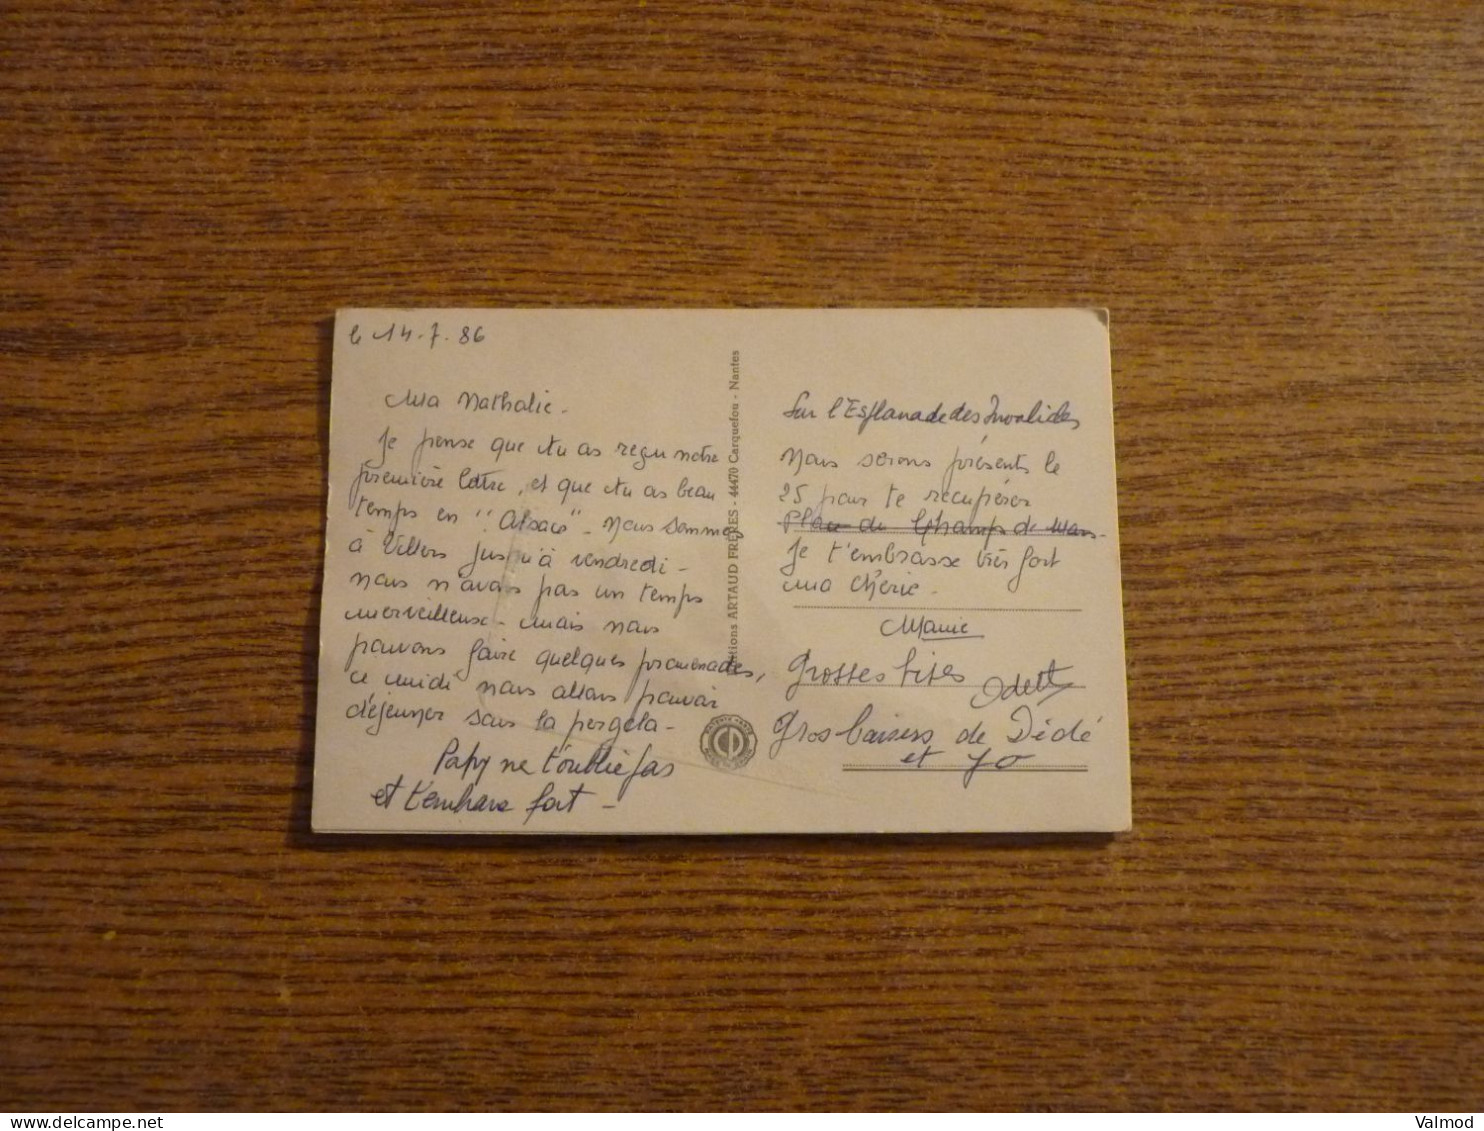 le 14.7.86
Ma Nathalie.
Je pense que tu as reçu notre
première lettre, et que tu as beau
temps en "Alsace". Nous sommes
à Villers jusqu'à vendredi -
nous n'avons pas un temps
merveilleux - mais nous
pouvons faire quelques promenades,
ce midi nous allons pouvoir
déjeuner sous la pergola -
Papy ne t'oublie pas
et t'embrasse fort -
Editions ARTAUD FRÈRES - 44470 Carquefou - Nantes
Sur l'Esplanade des Invalides
Nous serons présents le
25 pour te récupérer
Place du Champs de Mars.
Je t'embrasse très fort
ma chérie.
Mamie
Grosses bises
Odette
Gros baisers de Dédé
et Jo
Valmod